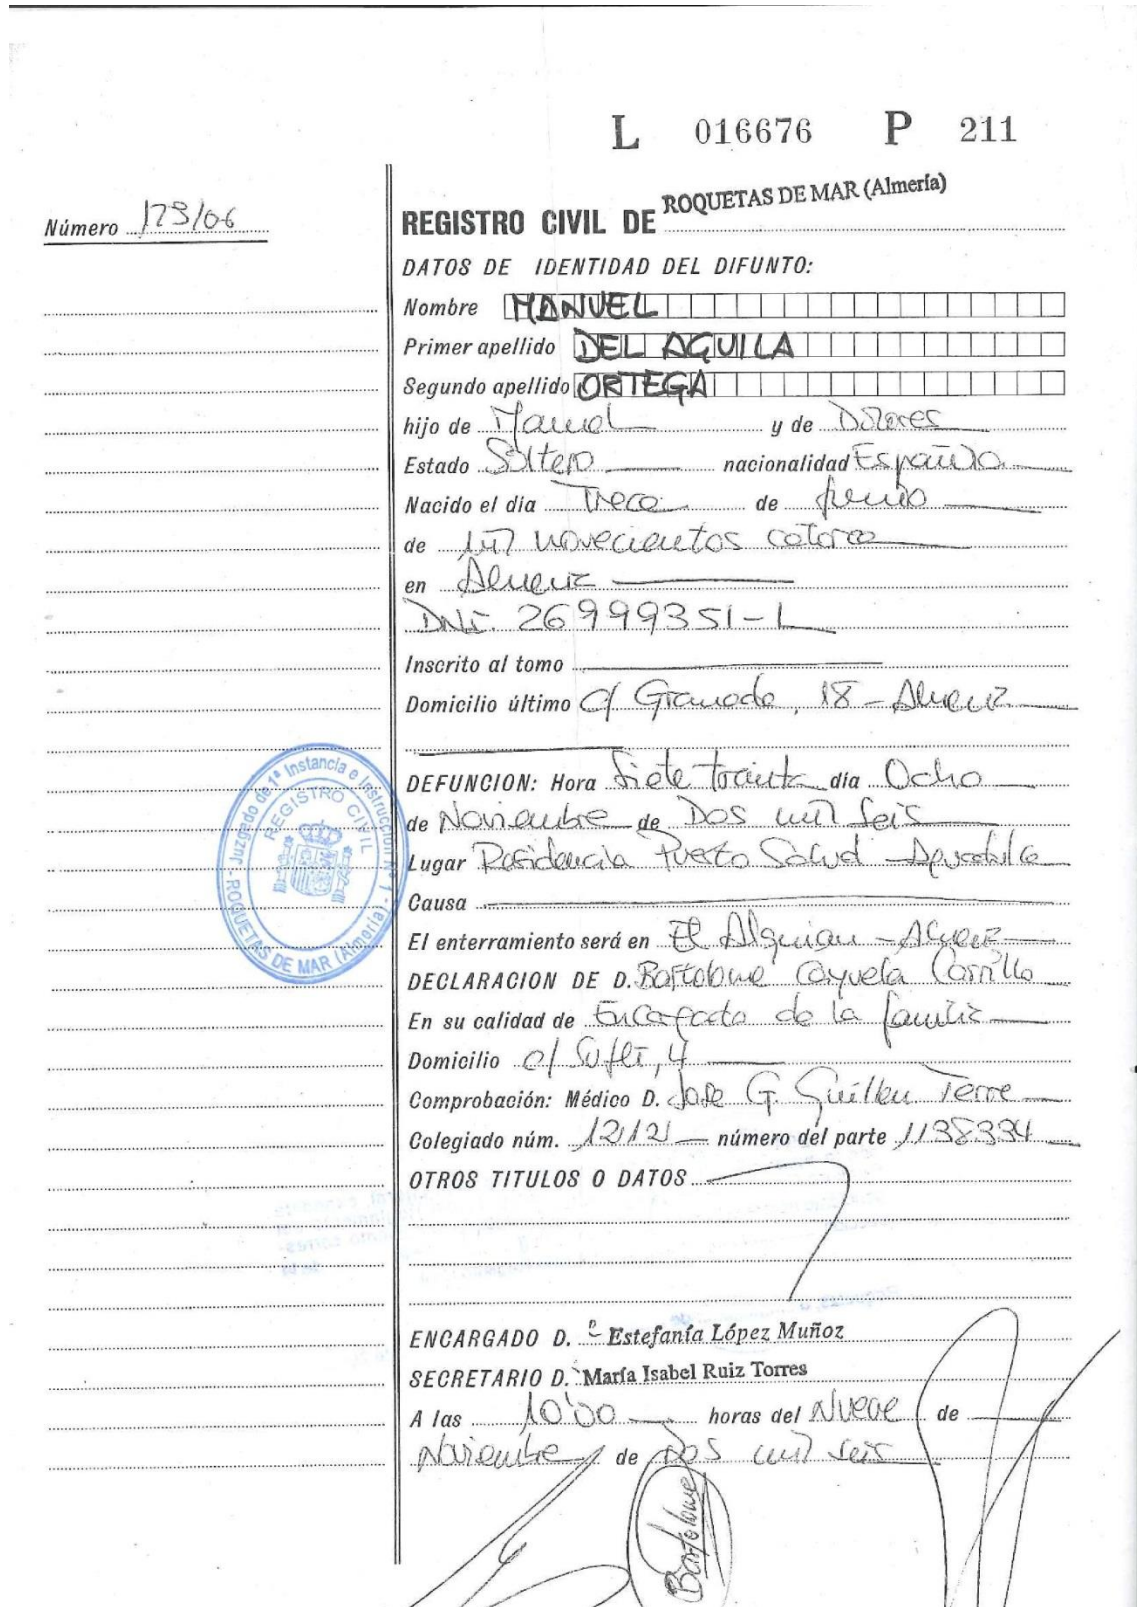 L 016676 P 211
Número 173/06
REGISTRO CIVIL DE ROQUETAS DE MAR (Almería)
DATOS DE IDENTIDAD DEL DIFUNTO:
Nombre MANUEL
Primer apellido DEL AGUILA
Segundo apellido ORTEGA
hijo de Manuel y de Dolores
Estado Soltero nacionalidad Española
Nacido el día Trece de Junio
de mil novecientos catorce
en Almería
DNI. 26999351-L
Inscrito al tomo
Domicilio último C/ Granada, 18 - Almería
DEFUNCION: Hora Siete treinta día Ocho
de Noviembre de Dos mil seis
Lugar Residencia Puerto Salud - Aguadulce
Causa
El enterramiento será en El Alquian - Almería
DECLARACION DE D. Bartolome Cayuela Carrillo
En su calidad de Encargado de la familia
Domicilio c/ Suflí, 4
Comprobación: Médico D. Jose G. Guillen Terre
Colegiado núm. 12121 número del parte 1138334
OTROS TITULOS O DATOS
ENCARGADO D.ª Estefanía López Muñoz
SECRETARIO D. María Isabel Ruiz Torres
A las 10'00 horas del Nueve de
Noviembre de Dos mil seis
Bartolome
Juzgado de 1ª Instancia e Instrucción Nº 1 - ROQUETAS DE MAR (Almería) -
REGISTRO CIVIL